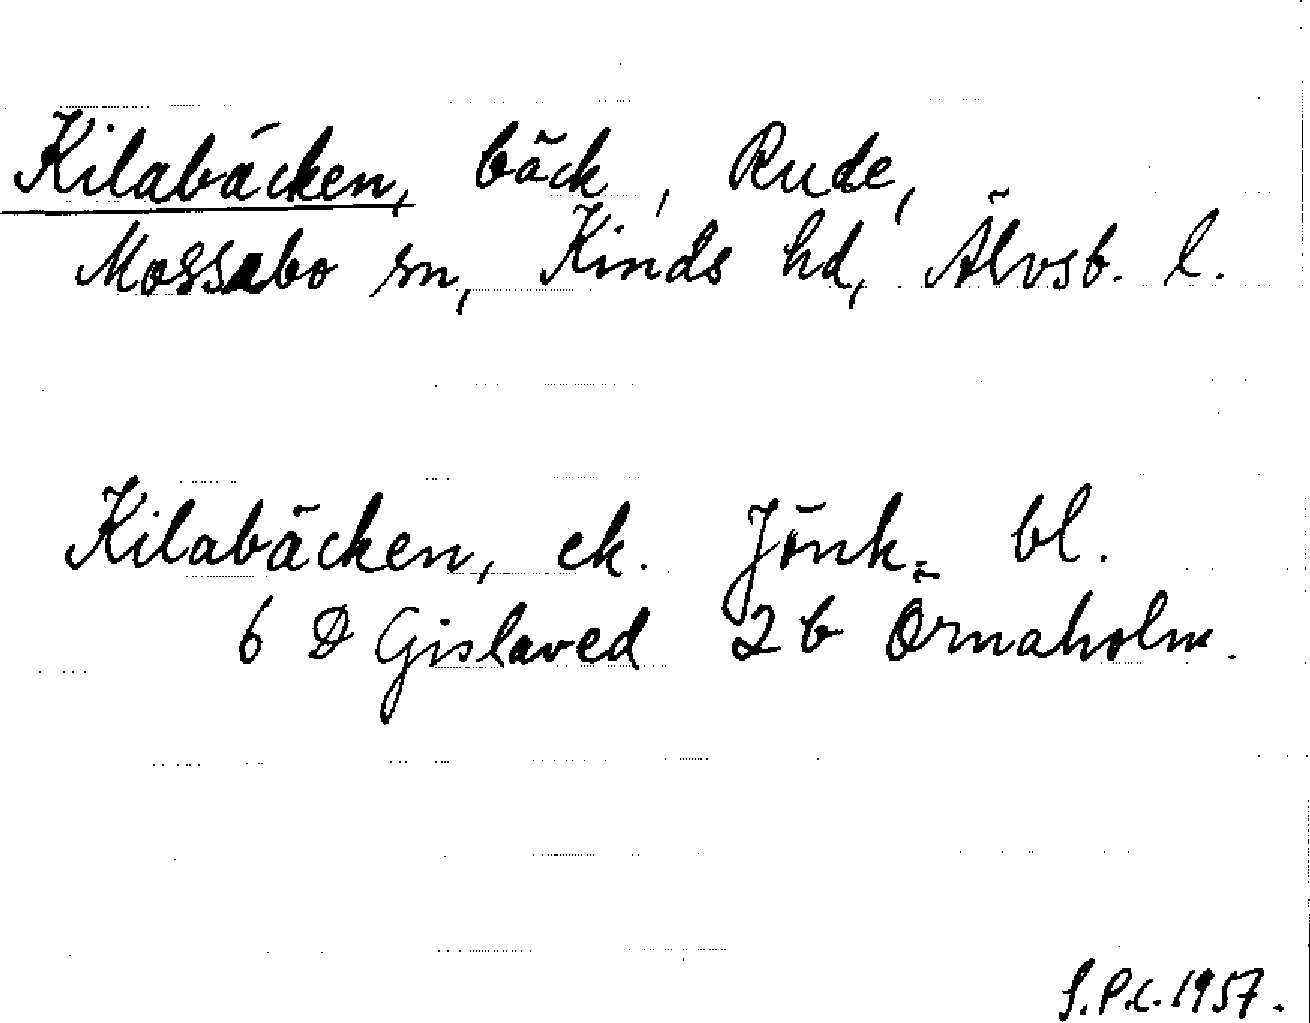 Kilabäcken, bäck, Rude,
Mossebo sn, Kinds hd, Älvsb. l.
Kilabäcken, ek. Jönk. bl.
6 D Gislaved 2b Örnaholm.
S.P.L. 1957.